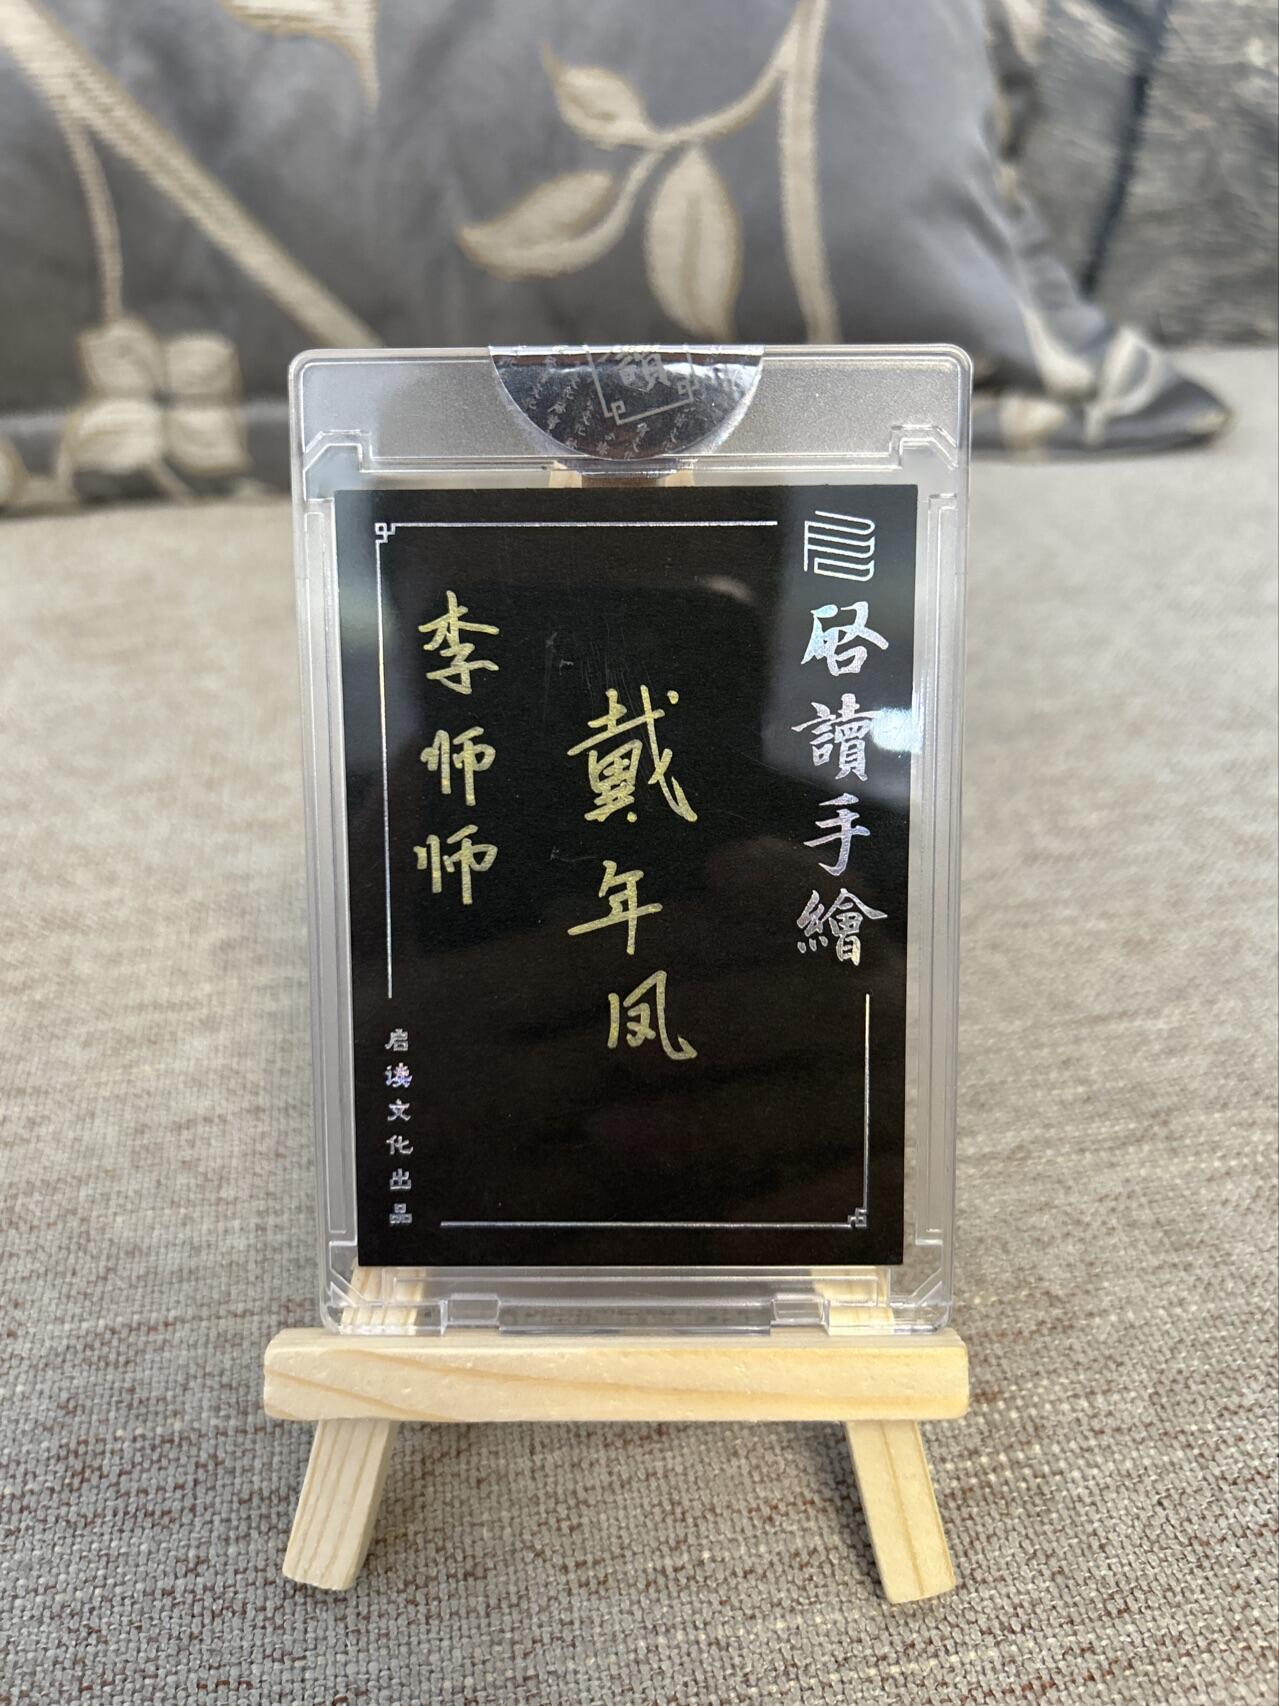 讀
啓讀手繪
戴年凤
李师师
启读文化出品